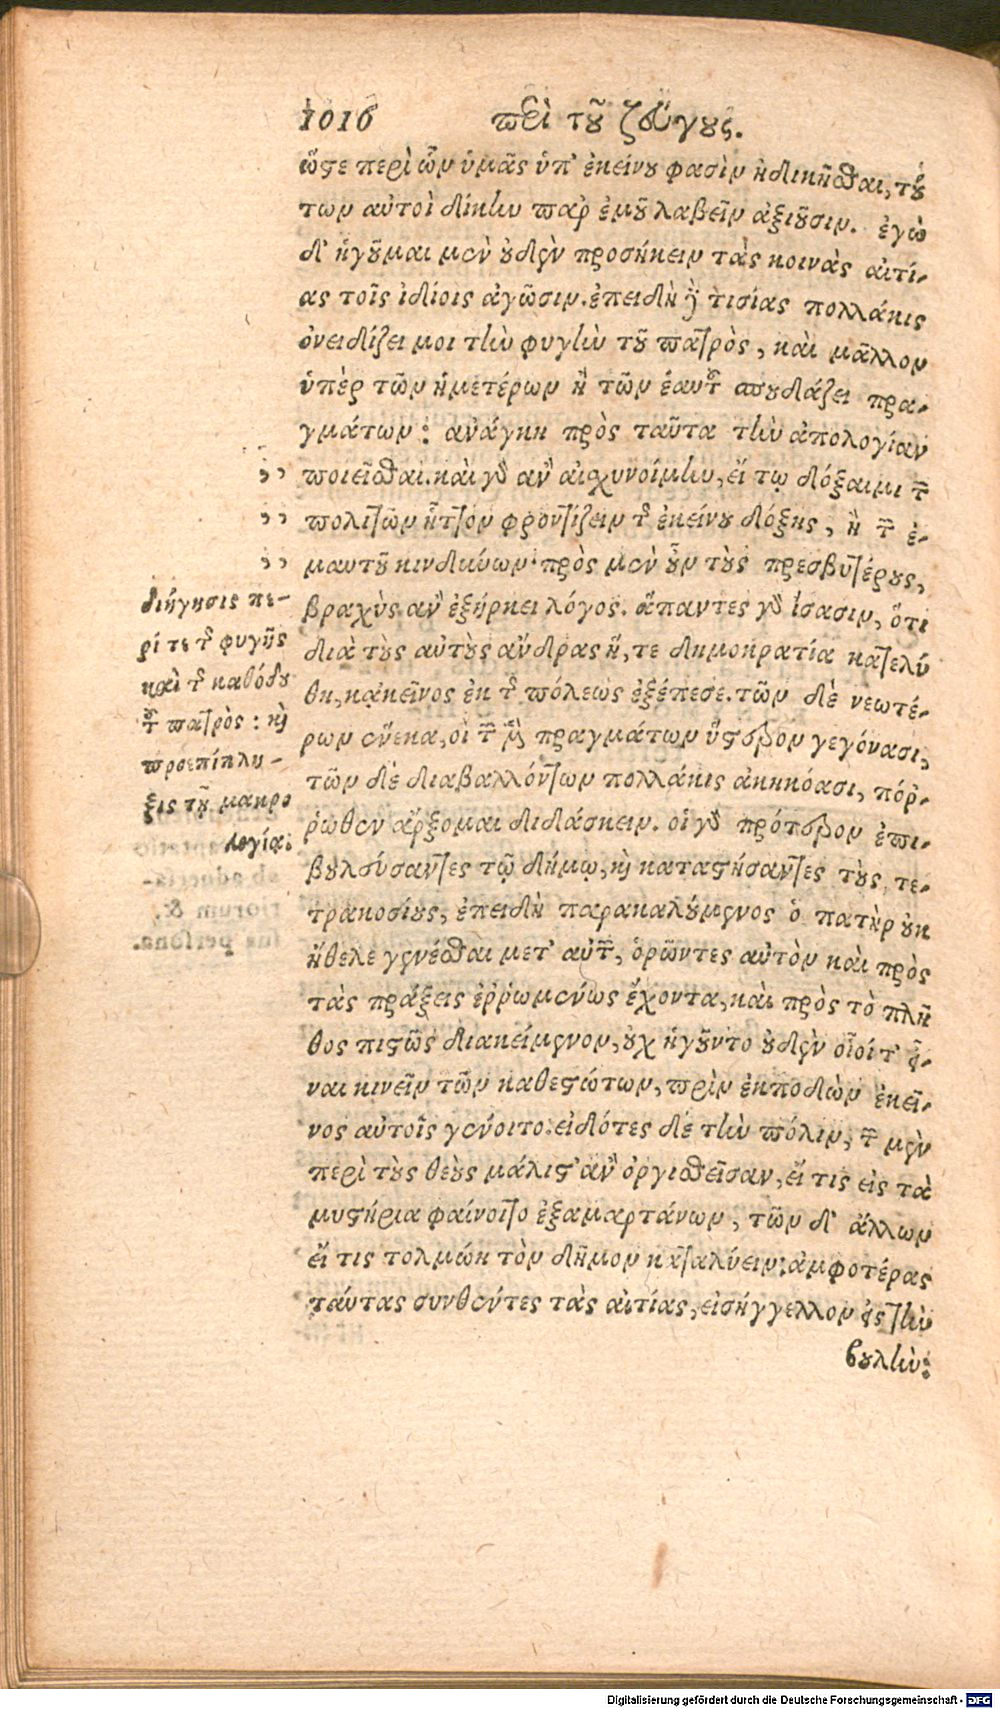 1016 περὶ τοῦ ζεύγους.
ὥστε περὶ ὧν ὑμᾶς ὑπ' ἐκείνου φασὶν ἠδικῆσθαι, τού
των αὐτοὶ δίκην παρ' ἐμοῦ λαβεῖν ἀξιοῦσιν. ἐγὼ
δ' ἡγοῦμαι μὲν οὐδὲν προσήκειν τὰς κοινὰς αἰτί-
ας τοῖς ἰδίοις ἀγῶσιν. ἐπειδὴ δὲ τισίας πολλάκις
ὀνειδίζει μοι τὴν φυγὴν τοῦ πατρὸς, καὶ μᾶλλον
ὑπὲρ τῶν ἡμετέρων ἢ τῶν ἑαυτοῦ σπουδάζει πρα-
γμάτων: ἀνάγκη πρὸς ταῦτα τὴν ἀπολογίαν
ποιεῖσθαι. καὶ γὰρ ἂν αἰσχυνοίμην, εἴ τῳ δόξαιμι τῶν
πολιτῶν ἧττον φροντίζειν τῆς ἐκείνου δόξης, ἢ τῶν ἐ-
μαυτοῦ κινδύνων· πρὸς μὲν οὖν τοὺς πρεσβυτέρους,
βραχὺς ἂν ἐξήρκει λόγος. ἅπαντες γὰρ ἴσασιν, ὅτι
διὰ τοὺς αὐτοὺς ἄνδρας ἥ, τε δημοκρατία κατελύ
θη, κἀκεῖνος ἐκ τῆς πόλεως ἐξέπεσε. τῶν δὲ νεωτέ-
ρων ἕνεκα, οἳ τῶν μὲν πραγμάτων ὕστερον γεγόνασι,
τῶν δὲ διαβαλλόντων πολλάκις ἀκηκόασι, πόρ-
ρωθεν ἄρξομαι διδάσκειν. οἱ γὰρ πρότερον ἐπι-
βουλεύσαντες τῷ δήμῳ, καὶ καταστήσαντες τοὺς τε-
τρακοσίους, ἐπειδὴ παρακαλούμενος ὁ πατὴρ οὐκ
ἤθελε γενέσθαι μετ' αὐτῶν, ὁρῶντες αὐτὸν καὶ πρὸς
τὰς πράξεις ἐρρωμένως ἔχοντα, καὶ πρὸς τὸ πλῆ
θος πιστῶς διακείμενον, οὐχ ἡγοῦντο οὐδὲν οἷοί τ' εἶ-
ναι κινεῖν τῶν καθεστώτων, πρὶν ἐκποδὼν ἐκεῖ-
νος αὐτοῖς γένοιτο. εἰδότες δὲ τὴν πόλιν, τῶν μὲν
περὶ τοὺς θεοὺς μάλιστ' ἂν ὀργισθεῖσαν, εἴ τις εἰς τὰ
μυστήρια φαίνοιτο ἐξαμαρτάνων, τῶν δ' ἄλλων
εἴ τις τολμώη τὸν δῆμον καταλύειν: ἀμφοτέρας
ταύτας συνθέντες τὰς αἰτίας, εἰσήγγελλον εἰς τὴν
βουλήν:
,,
,,
,,
διήγησις πε-
ρί τε τῆς φυγῆς
καὶ τῆς καθόδου
τοῦ πατρὸς: καὶ
προεπίπλη-
ξις τοῦ μακρο
λογίας
Digitalisierung gefördert durch die Deutsche Forschungsgemeinschaft - DFG